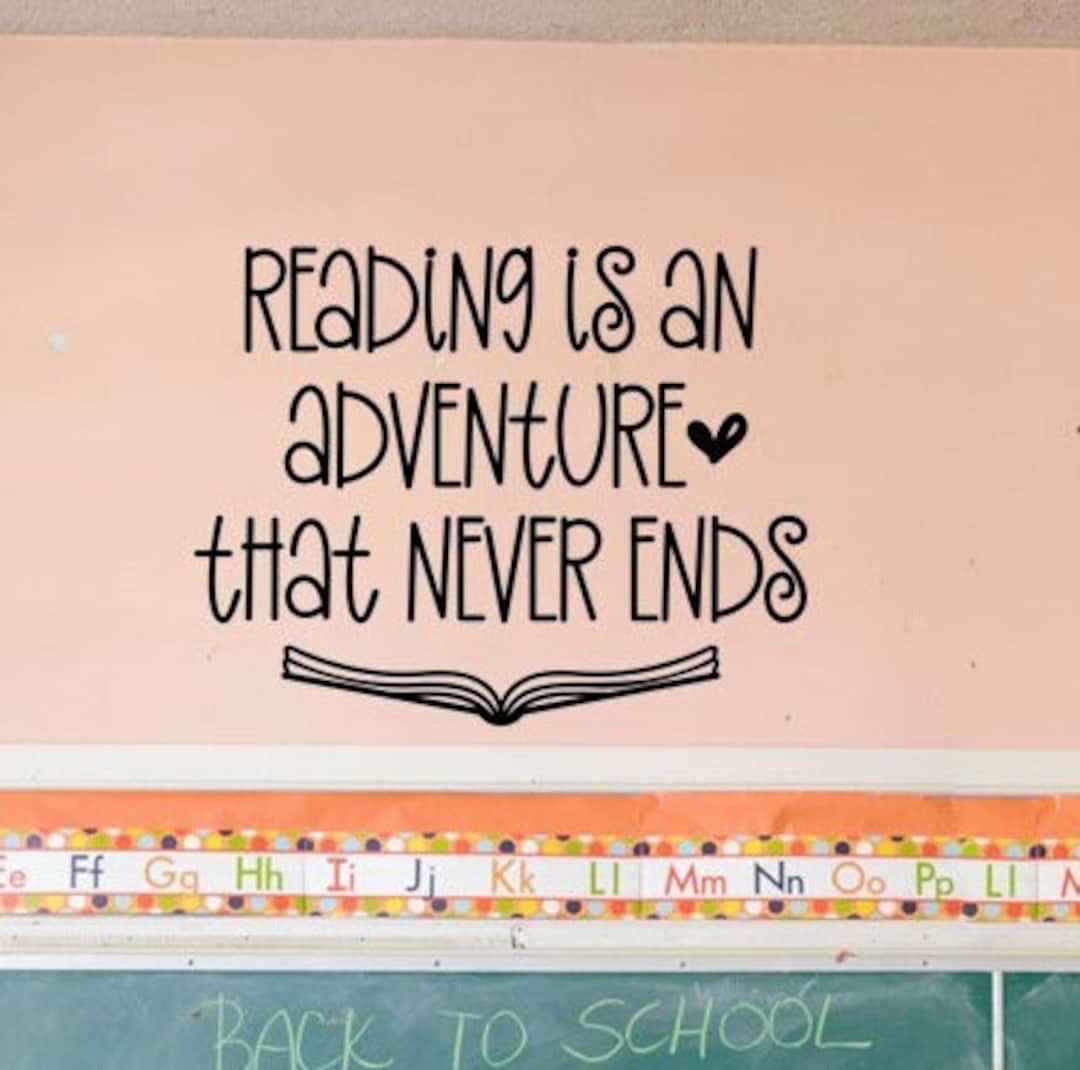 READING IS AN
ADVENTURE
THAT NEVER ENDS
Ee Ff Gg Hh Ii Jj Kk Ll Mm Nn Oo Pp Ll M
BACK TO SCHOOL